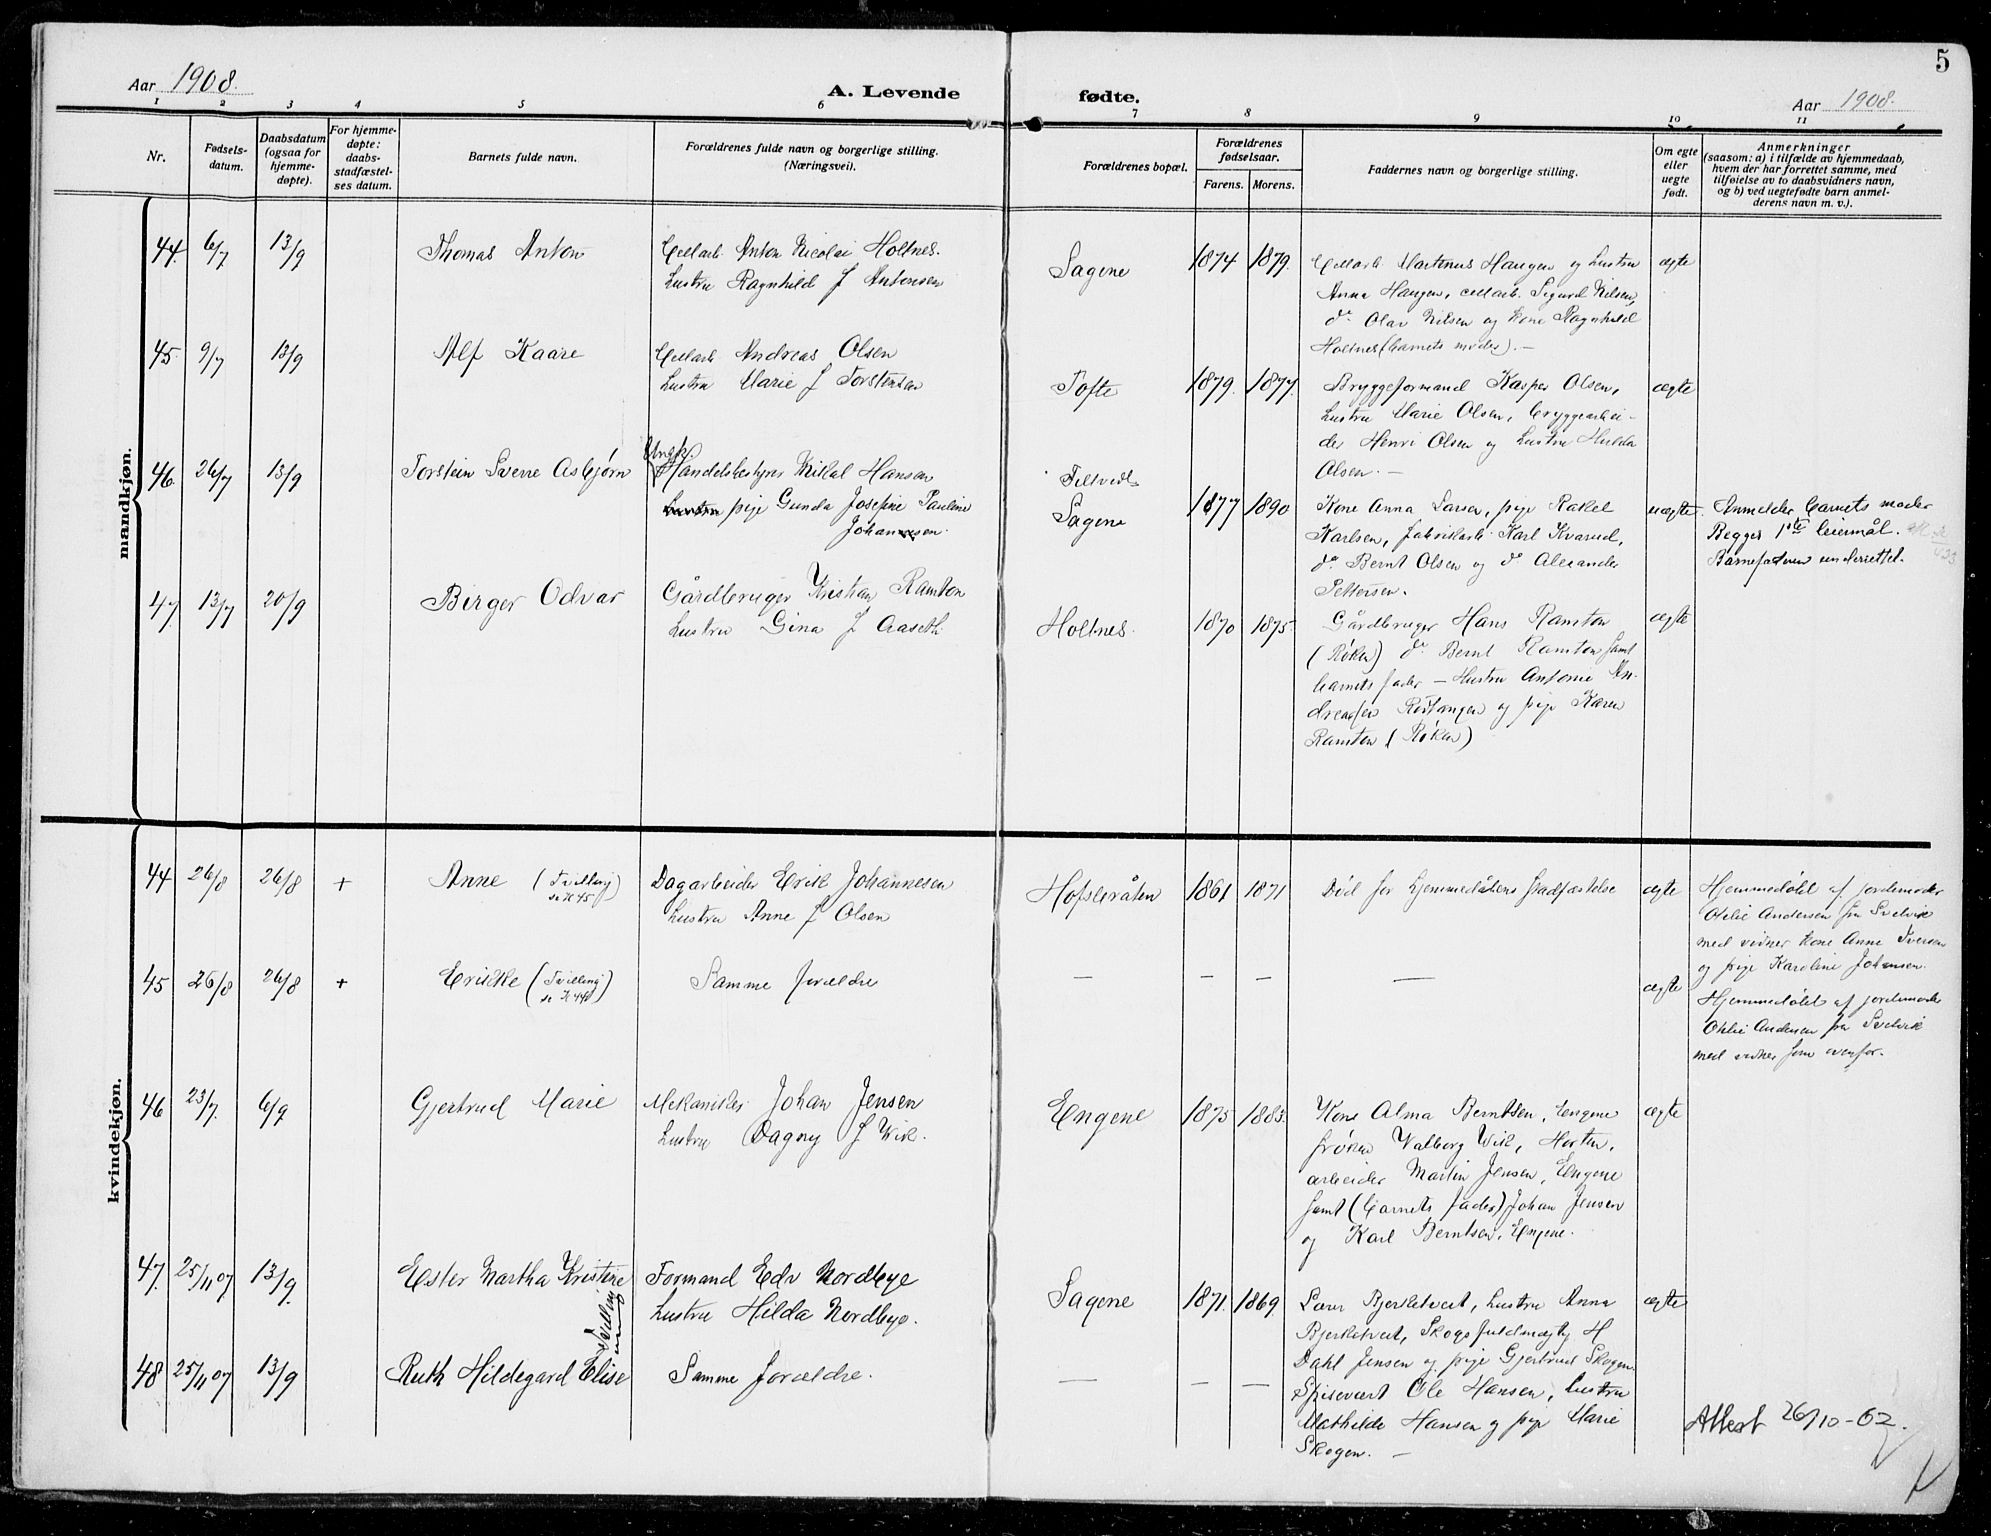 5
Aar 1908.
A. Levende
fødte.
Aar 1908.
1 2 3 4 5 6 7 8 9 10 11
Nr.
Fødsels-
datum.
Daabsdatum
(ogsaa for
hjemme-
døpte).
For hjemme-
døpte:
daabs-
stadfæstel-
ses datum.
Barnets fulde navn.
Forældrenes fulde navn og borgerlige stilling.
(Næringsveil).
Forældrenes bopæl.
Forældrenes
fødselsaar.
Farens. Morens.
Faddernes navn og borgerlige stilling.
Om egte
eller
uegte
født.
Anmerkninger
(saasom: a) i tilfælde av hjemmedaab,
hvem der har forrettet samme, med
tilføielse av to daabsvidners navn,
og b) ved uegtefødte barn anmel-
derens navn m. v.).
mandkjøn.
44. 6/7 13/9
Thomas Anton
Cellarb. Anton Nicolai Holtnes.
hustru Ragnhild f Antonsen
Sagene
1874 1879.
Cellarb. Martinus Haugen og hustru
Anna Haugen, cellarb. Sigurd Nilsen,
do Olav Nilsen og kone Ragnhild
Holtnes (barnets moder). –
ægte
45. 9/7 13/9
Alf Kaare
Cellarb. Andreas Olsen
hustru Marie f Torstensen
Tofte
1879. 1877.
Bryggeformand Kasper Olsen,
hustru Marie Olsen, bryggearbei-
der Henri Olsen og hustru Hulda
Olsen. –
ægte
46. 26/7 13/9
Torstein Sverre Asbjørn
Ungk.
Handelsbestyrer Mikal Hansen
hustru pige Gunda Josefine Pauline
Johannesen.
Filtvedt
Sagene
1877 1890
Kone Anna Larsen, pige Rakel
Karlsen, fabrikarb. Karl Kvarud,
do Bernt Olsen og do Alexander
Pettersen.
uægte.
Anmelder barnets moder
Begges 1ste leiermål.
Barnefaderen underrettet.
47. 13/7 20/9
Birger Odvar
Gårdbruger Kristian Ramton
hustru Gina f Aaseth
Holtnes.
1870 1875.
Gårdbruger Hans Ramton
(Røken) do Bernt Ramton samt
barnets fader – Hustru Antonie An-
dreasen Rødtangen og pige Karen
Ramton (Røken)
ægte
kvindekjøn.
44 26/8 26/8 +
Anne (Tvilling
se N 45)
Dagarbeider Erik Johannesen
hustru Anne f Olsen
Hofsbråten
1861 1871
Død før hjemmedåbens stadfæstelse
ægte
Hjemmedøbt af jordemoder
Othlie Andersen fra Svelvik
med vidner kone Anne Iversen
og pige Karoline Johansen.
45 26/8 26/8 +
Erikke (Tvilling
se N 44)
Samme forældre
— – – —
ægte
Hjemmedøbt af jordemoder
Othlie Andersen fra Svelvik
med vidner som ovenfor.
46 23/7. 6/9
Gjertrud Marie
Mekaniker Johan Jensen
hustru Dagny f Wik.
Engene
1875 1883.
Kone Alma Berntsen, Engene
frøken Valborg Wik, Horten,
arbeider Martin Jensen, Engene
samt (barnets fader) Johan Jensen
og Karl Berntsen, Engene.
ægte
47. 25/11 07 13/9.
Ester Martha Kristine
Tvilling
Formand Edv Nordbye
hustru Hilda Nordbye.
Sagene
1871. 1869
Lærer Bjerketvedt, hustru Anna
Bjerketvedt, Skogsfuldmægtig H
Dahl Jensen og pige Gjertrud Skogen.
ægte
48 25/11 07 13/9
Ruth Hildegard Elise
Samme forældre.
— – –
Spisevært Ole Hansen, hustru
Mathilde Hansen og pige Marie
Skogen. –
Attest 26/10-62.